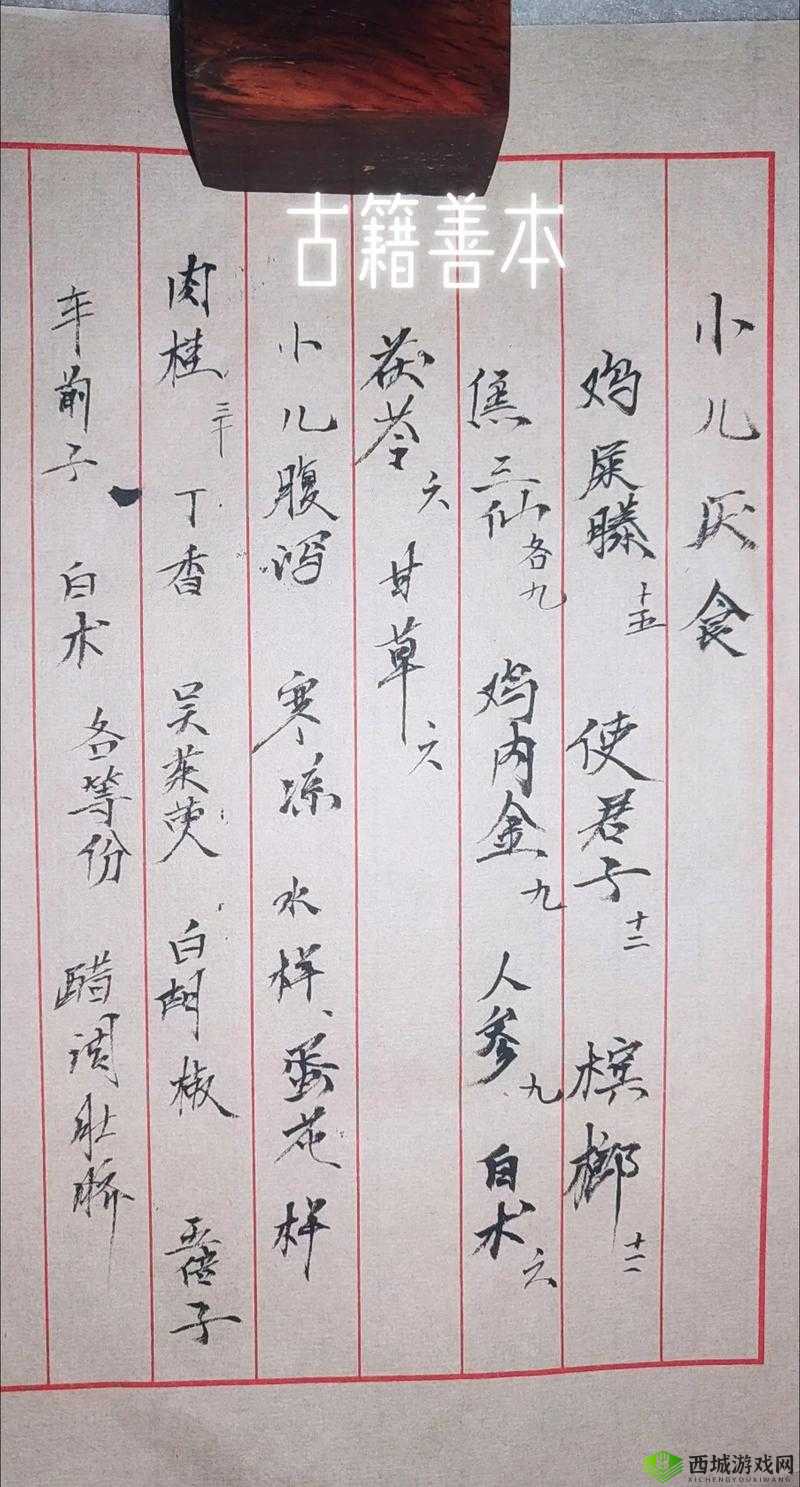 古籍善本
小儿厌食
鸡屎藤 十五 使君子 十二 槟榔 十二
焦三仙 各九 鸡内金 九 人参 九 白术 六
茯苓 六 甘草 六
小儿腹泻 寒凉 水样、蛋花样
肉桂 丁香 吴茱萸 白胡椒 五倍子
车前子 白术 各等份 醋调肚脐
西城游戏网
XICHENGYOUXIWANG